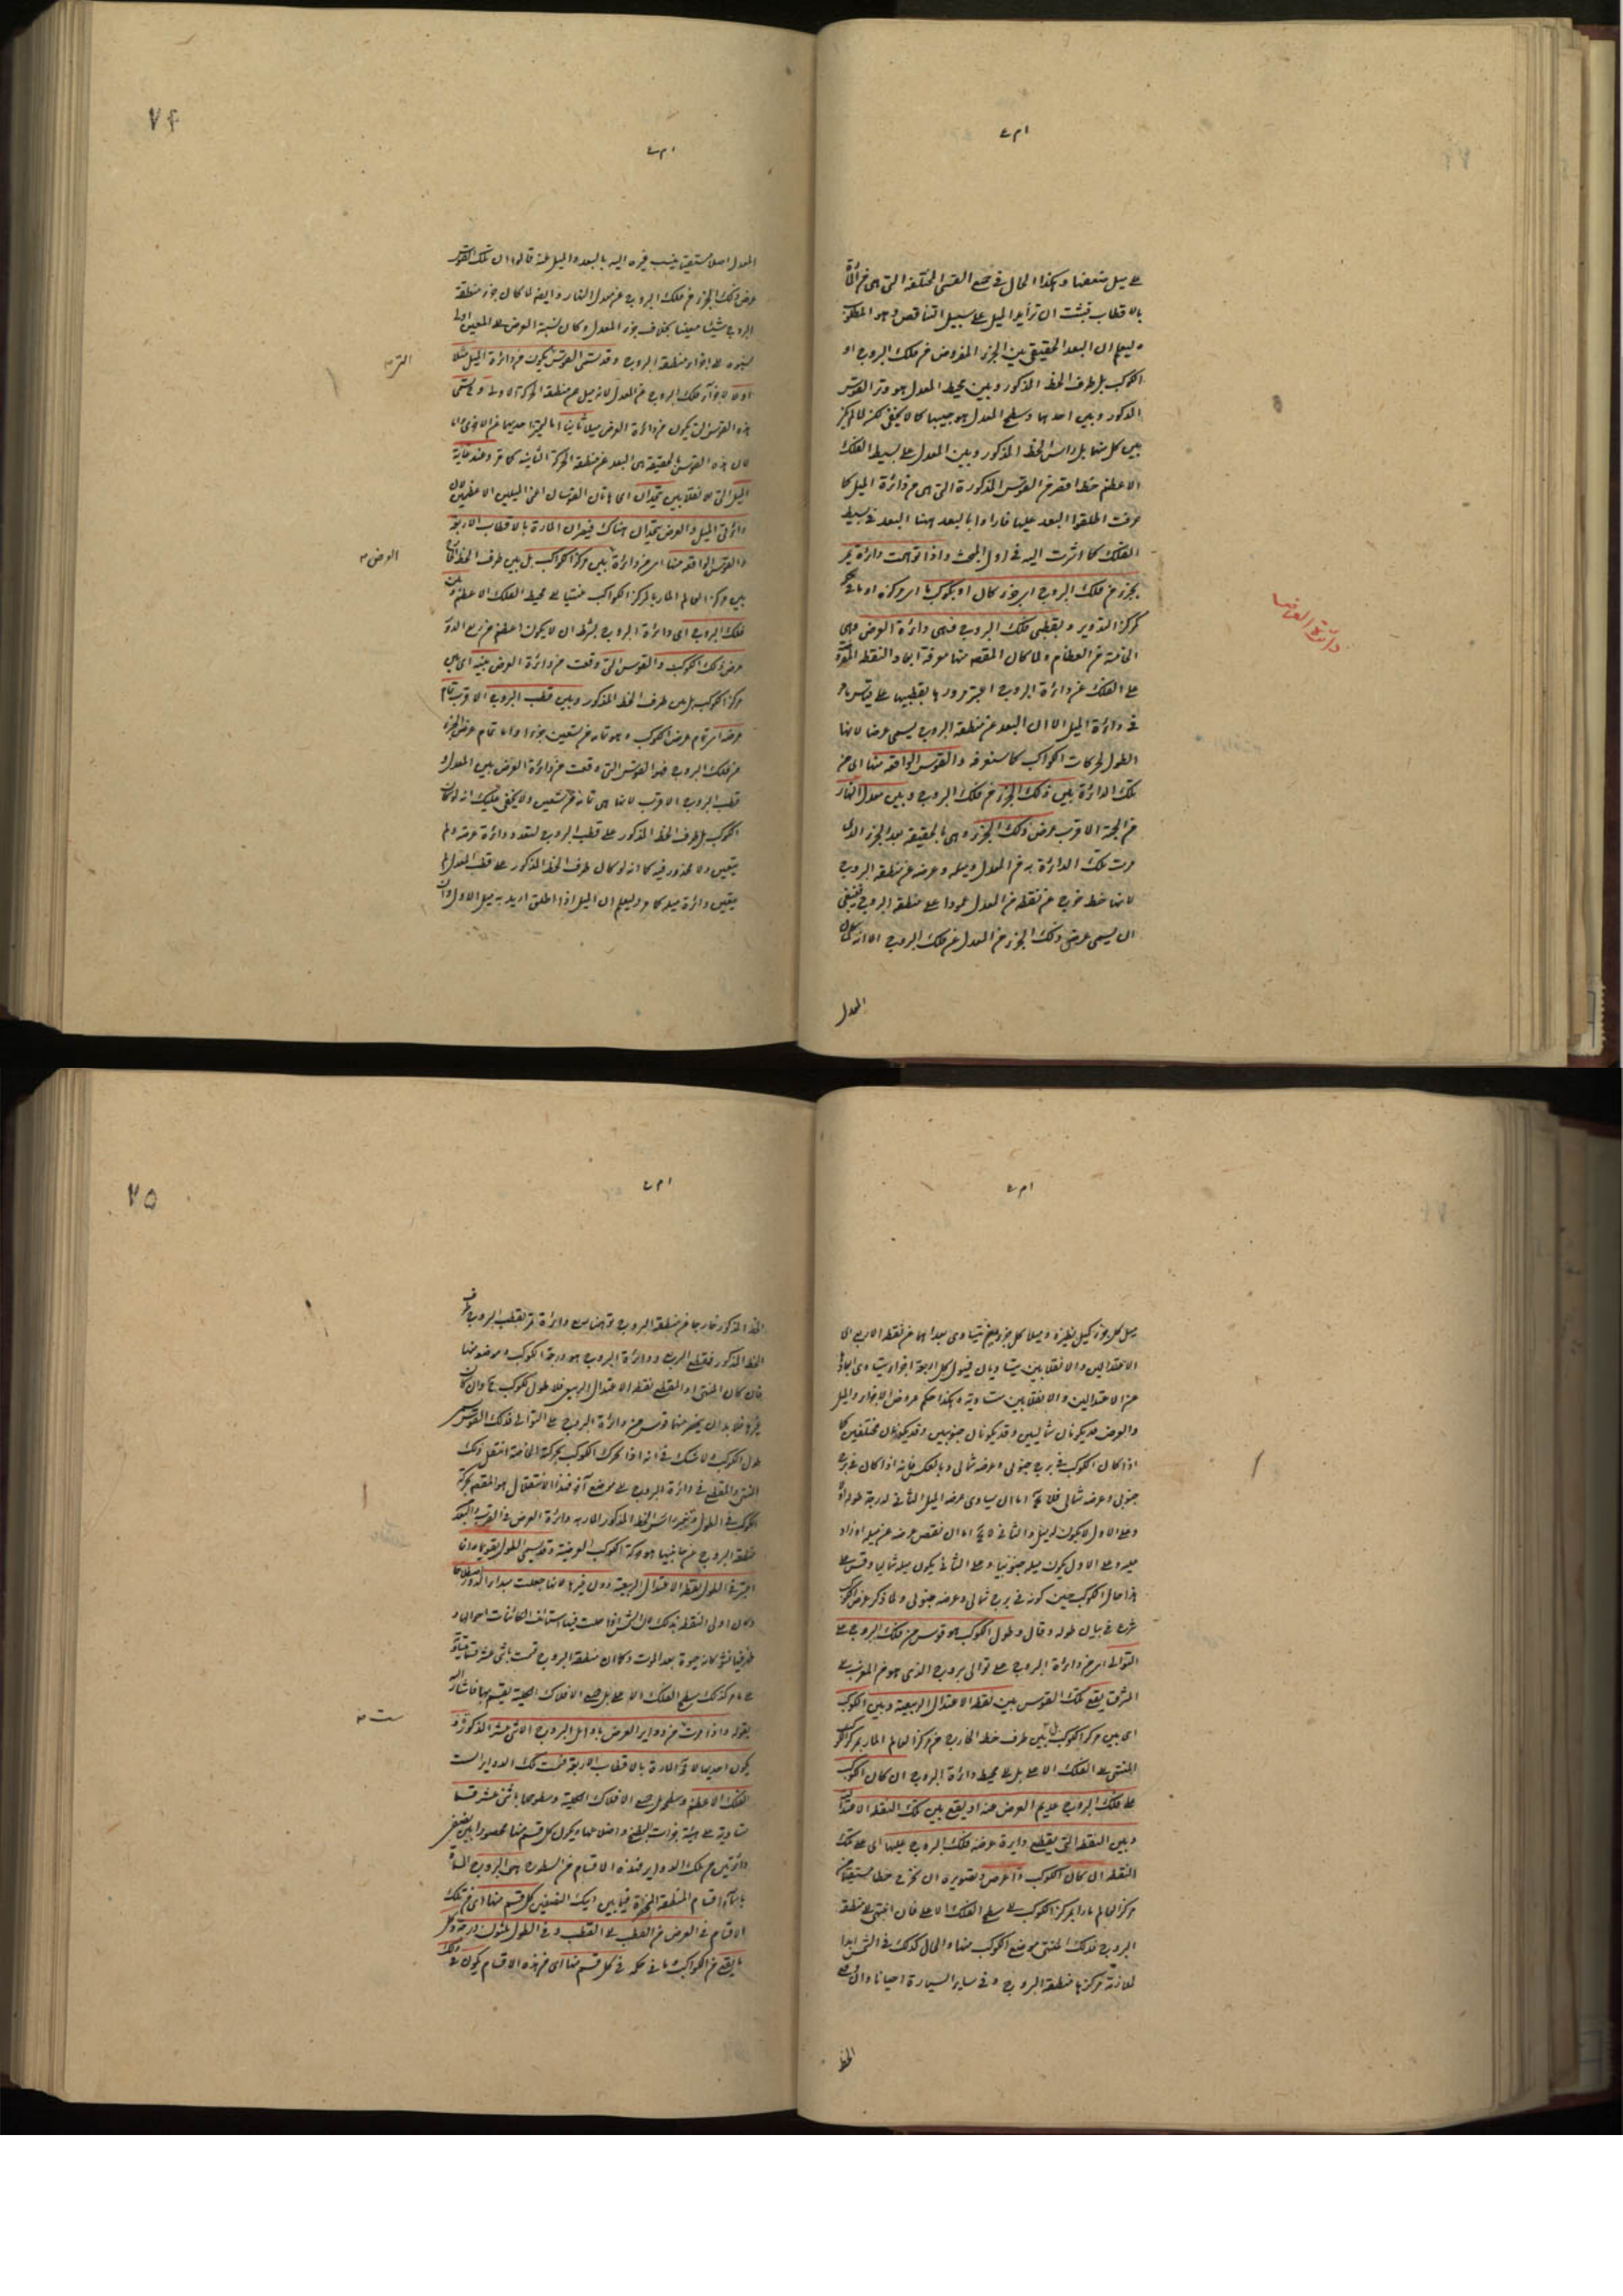 على سبيل متعضا وهكذا الحال في جميع القسى المختلفة التي هي من المارة
بالاقطاب فثبت ان تزايد الميل على سبيل التناقص وهو المطلوب
وليعلم ان البعد الحقيقي بين الجزء المفروض من فلك البروج او
الكوكب بل طرف الخط المذكور وبين محيط المعدل هو وتر القوس
المذكور وبين احدهما وسطح المعدل هو جيبها كما لا يخفى لكن لما لم يكن
بين كل منهما بل راس الخط المذكور وبين المعدل على بسيط الفلك
الاعظم خط اقصر من القوس المذكورة التي هي من دائرة الميل كما
عرفت اطلقوا البعد عليها فارادوا بالبعد ههنا البعد في بسيط
الفلك كما اشرت اليه في اول المبحث واذا توهمت دائرة تمر
بجزء من فلك البروج اى جزء كان او بكوكب ما اى مركزه او ما في حكمه
كمركز التدوير وبقطبي فلك البروج فهي دائرة العرض وهي
الخامسة من العظام ولما كان المقصود منها معرفة ابعاد النقط المفروضة
على الفلك عن دائرة البروج اعتبر مرورها بقطبيها على قياس ما مر
في دائرة الميل الا ان البعد عن منطقة البروج يسمى عرضا لانها
الطول لحركات الكواكب كما ستعرفه والقوس الواقعة منها اى من
تلك الدائرة بين ذلك الجزء من فلك البروج وبين معدل النهار
من الجهة الاقرب عرض ذلك الجزء وهي بالحقيقة بعد الجزء الذي
مرت تلك الدائرة به من المعدل وميله وعرضه عن منطقة البروج
لانها خط خرج من نقطة من المعدل عمودا على منطقة البروج فينبغي
ان يسمى عرض ذلك الجزء من المعدل عن فلك البروج الا انه لما كان
المعدل
دائرة العرض
٧٤
المعدل اصلا مستقيما ينسب غيره اليه بالبعد والميل عنه قالوا ان تلك القوس
عرض ذلك الجزء من فلك البروج عن معدل النهار وايضا لما كان جزء منطقة
البروج شيئا معينا بخلاف جزء المعدل وكان نسبة العرض الى المعين اولى
نسبوه الى اجزاء منطقة البروج وقد تسمى القوس يكون من دائرة الميل ميلا
اولا لاجزاء فلك البروج عن المعدل لانه ميل عن منطقة الحركة الاولى وتسمى
هذه القوس التي تكون من دائرة العرض ميلا ثانيا اما ليتميز احديهما عن الاخرى واما
لان هذه القوس بالحقيقة هي البعد عن منطقة الحركة الثانية كما مر وعند غاية
الميل التي للانقلابين يتحدان اى هاتان القوسان اعني الميلين الاعظمين لان
دائرتي الميل والعرض يتحدان هناك فيصيران المارة بالاقطاب الاربعة
والقوس الواقعة منها اى من دائرة بين مركز الكواكب بل بين طرف الخط الخارج
من مركز العالم المار بالمركز الكواكب منتهيا الى محيط الفلك الاعظم وبين
فلك البروج اى دائرة البروج بشرط ان لا يكون اعظم من ربع الدور
عرض ذلك الكوكب والقوس التي وقعت من دائرة العرض بينه اى بين
مركز الكوكب بل بين طرف الخط المذكور وبين قطب البروج الاقرب تمام
عرضه اى تمام عرض الكوكب وهو تمامه من تسعين جزءا واما تمام عرض الجزء
من فلك البروج فهو القوس التي وقعت من دائرة العرض بين المعدل و
قطب البروج الاقرب لانها هي تمامه من تسعين ولا يخفى عليك انه لو كان
الكوكب بل طرف الخط المذكور على قطب البروج لتعدد دائرة عرضه ولم
يتعين ولا محذور فيه كما انه لو كان طرف الخط المذكور على قطب المعدل لم
يتعين دائرة ميله كما مر وليعلم ان الميل اذا اطلق اريد به ميل الاول وان
التي
العرض
ميل كل جزء كميل نظيره وميلا كل جزئين يتساوى بعداهما عن نقطة الاربع اى
الاعتدالين والانقلابين متساويان فميول كل اربعة اجزاء يتساوى ابعادها
عن الاعتدالين والانقلابين متساوية وهكذا حكم عروض الاجزاء والميل
والعرض قد يكونان شماليين وقد يكونان جنوبيين وقد يكونان مختلفين كما
اذا كان الكوكب في برج جنوبي وعرضه شمالي وبالعكس فانه اذا كان في برج
جنوبي وعرضه شمالي فلا يخ اما ان يساوى عرضه الميل الثاني لدرجة طوله او لا
وعلى الاول لا يكون له ميل والثاني لا يخ اما ان نقص عرضه عن ميله او زاد
عليه وعلى الاول يكون ميله جنوبيا وعلى الثاني يكون ميله شماليا وقس على
هذا حال الكوكب حين كونه في برج شمالي وعرضه جنوبي ولما ذكر عرض الكوكب
شرع في بيان طوله وقال وطول الكوكب هو قوس من فلك البروج على
التوالى اى من دائرة البروج على توالى بروج الذي هو من المغرب الى
المشرق يقع تلك القوس بين نقطة الاعتدال الربيعية وبين الكوكب
اى بين مركز الكوكب بل بين طرف خط الخارج من مركز العالم المار بمركز الكوكب
المنتهى الى الفلك الاعلى بل الى محيط دائرة البروج ان كان الكوكب
على فلك البروج عديم العرض عنه او يقع بين تلك النقطة الاعتدال
وبين النقطة التي يقطع دائرة عرضه فلك البروج عليها اى على تلك
النقطة ان كان الكوكب ذا عرض وتصويره ان نخرج خطا مستقيما من
مركز العالم مارا بمركز الكوكب الى سطح الفلك الاعلى فان انتهى الى منطقة
البروج فذلك المنتهى موضع الكوكب منها والحال كذلك في الشمس ابدا
لملازمة مركزها منطقة البروج وفي ساير السيارة احيانا وان وقع
الخط
٧٥
الخط المذكور خارجا من منطقة البروج توهمنا دائرة تمر بقطب البروج وطرف
الخط المذكور فمقطع الربع ودائرة البروج هو درجة الكوكب وموضعه منها
فان كان المنتهى او المقطع نقطة الاعتدال الربيعي فلا طول للكوكب ح وان كان
غيرها فلا بد ان ينحصر منهما قوس من دائرة البروج على التوالى فذلك القوس
طول الكوكب ولا شك في انه اذا تحرك الكوكب بحركة الخاصة انتقل ذلك
المنتهى والمقطع في دائرة البروج الى موضع آخر فهذا الانتقال هو المقصود بحركة
الكوكب في الطول وتغير راس الخط المذكور المار به دائرة العرض في القرب والبعد
منطقة البروج عن جانبيها هو حركة الكوكب العرضية وقد يسمى الطول تقويما وانما
اعتبر في الطول نقطة الاعتدال الربيعية دون غيرها لانها جعلت مبداء الدور اصطلاحا
وكان اولى النقط بذلك لان الشمس اذا حلت فيها استانف الكائنات احوالها و
ظهر فيها نشو كانه حيوة بعد الموت وكما ان منطقة البروج قسمت باثني عشر قسما متساوية
على ما مر كذلك سطح الفلك الاعلى بل جميع الافلاك الكلية يقسم بها فاشار اليه
بقوله واذا مرت من دواير العرض باوايل البروج الاثنى عشر المذكورة و
يكون احديها لا محالة المارة بالاقطاب الاربعة قسمت تلك الدواير الست
الفلك الاعظم وسطحه بل جميع الافلاك الكلية وسطوحها باثنى عشر قسما
متساوية على هيئة جوزات البطيخ واضلاعها ويكون كل قسم منها محصورا بين نصفي
دائرتين من تلك الدواير فهذه الاقسام من السطوح هي البروج المسماة
باسماء اقسام المنطقة المحازة فيما بين ذلك النصفين كل قسم منها اى من تلك
الاقسام في العرض من القطب الى القطب وفي الطول ثلثون درجة وكل
ما يقع من الكواكب ما في حكمه في كل قسم منها اى من هذه الاقسام يكون في ذلك
ست